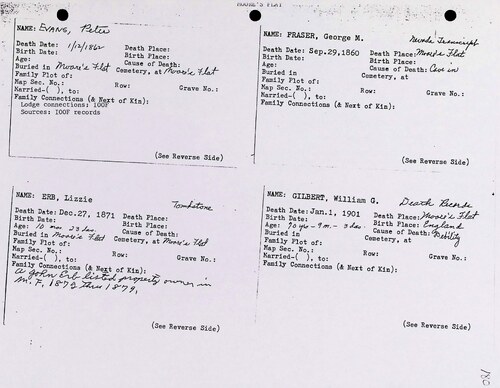 MOORE'S FLAT
NAME: EVANS, Peter
Death Date: 1/12/1862 Death Place:
Birth Date: Birth Place:
Age: Cause of Death:
Buried in Moore's Flat Cemetery, at Moore's Flat
Family Plot of:
Map Sec. No.: Row: Grave No.:
Married-( ), to:
Family Connections (& Next of Kin):
Lodge connections: IOOF
Sources: IOOF records
(See Reverse Side)
NAME: FRASER, George M.
Nevada Transcript
Death Date: Sep.29,1860 Death Place: Moore's Flat
Birth Date: Birth Place:
Age: Cause of Death: Cave in
Buried in Cemetery, at
Family Plot of:
Map Sec. No.: Row: Grave No.:
Married-( ), to:
Family Connections (& Next of Kin):
(See Reverse Side)
NAME: ERB, Lizzie
Tombstone
Death Date: Dec.27, 1871 Death Place:
Birth Date: Birth Place:
Age: 10 mos 23 das. Cause of Death:
Buried in Moore's Flat Cemetery, at Moore's Flat
Family Plot of:
Map Sec. No.: Row: Grave No.:
Married-( ), to:
Family Connections (& Next of Kin):
A John Erb listed property owner in
M.F. 1872 thru 1879.
(See Reverse Side)
NAME: GILBERT, William G.
Death Records
Death Date: Jan.1, 1901 Death Place: Moore's Flat
Birth Date: Birth Place: England
Age: 70 yrs - 9 m - 3 das. Cause of Death: Debility
Buried in Cemetery, at
Family Plot of:
Map Sec. No.: Row: Grave No.:
Married-( ), to:
Family Connections (& Next of Kin):
(See Reverse Side)